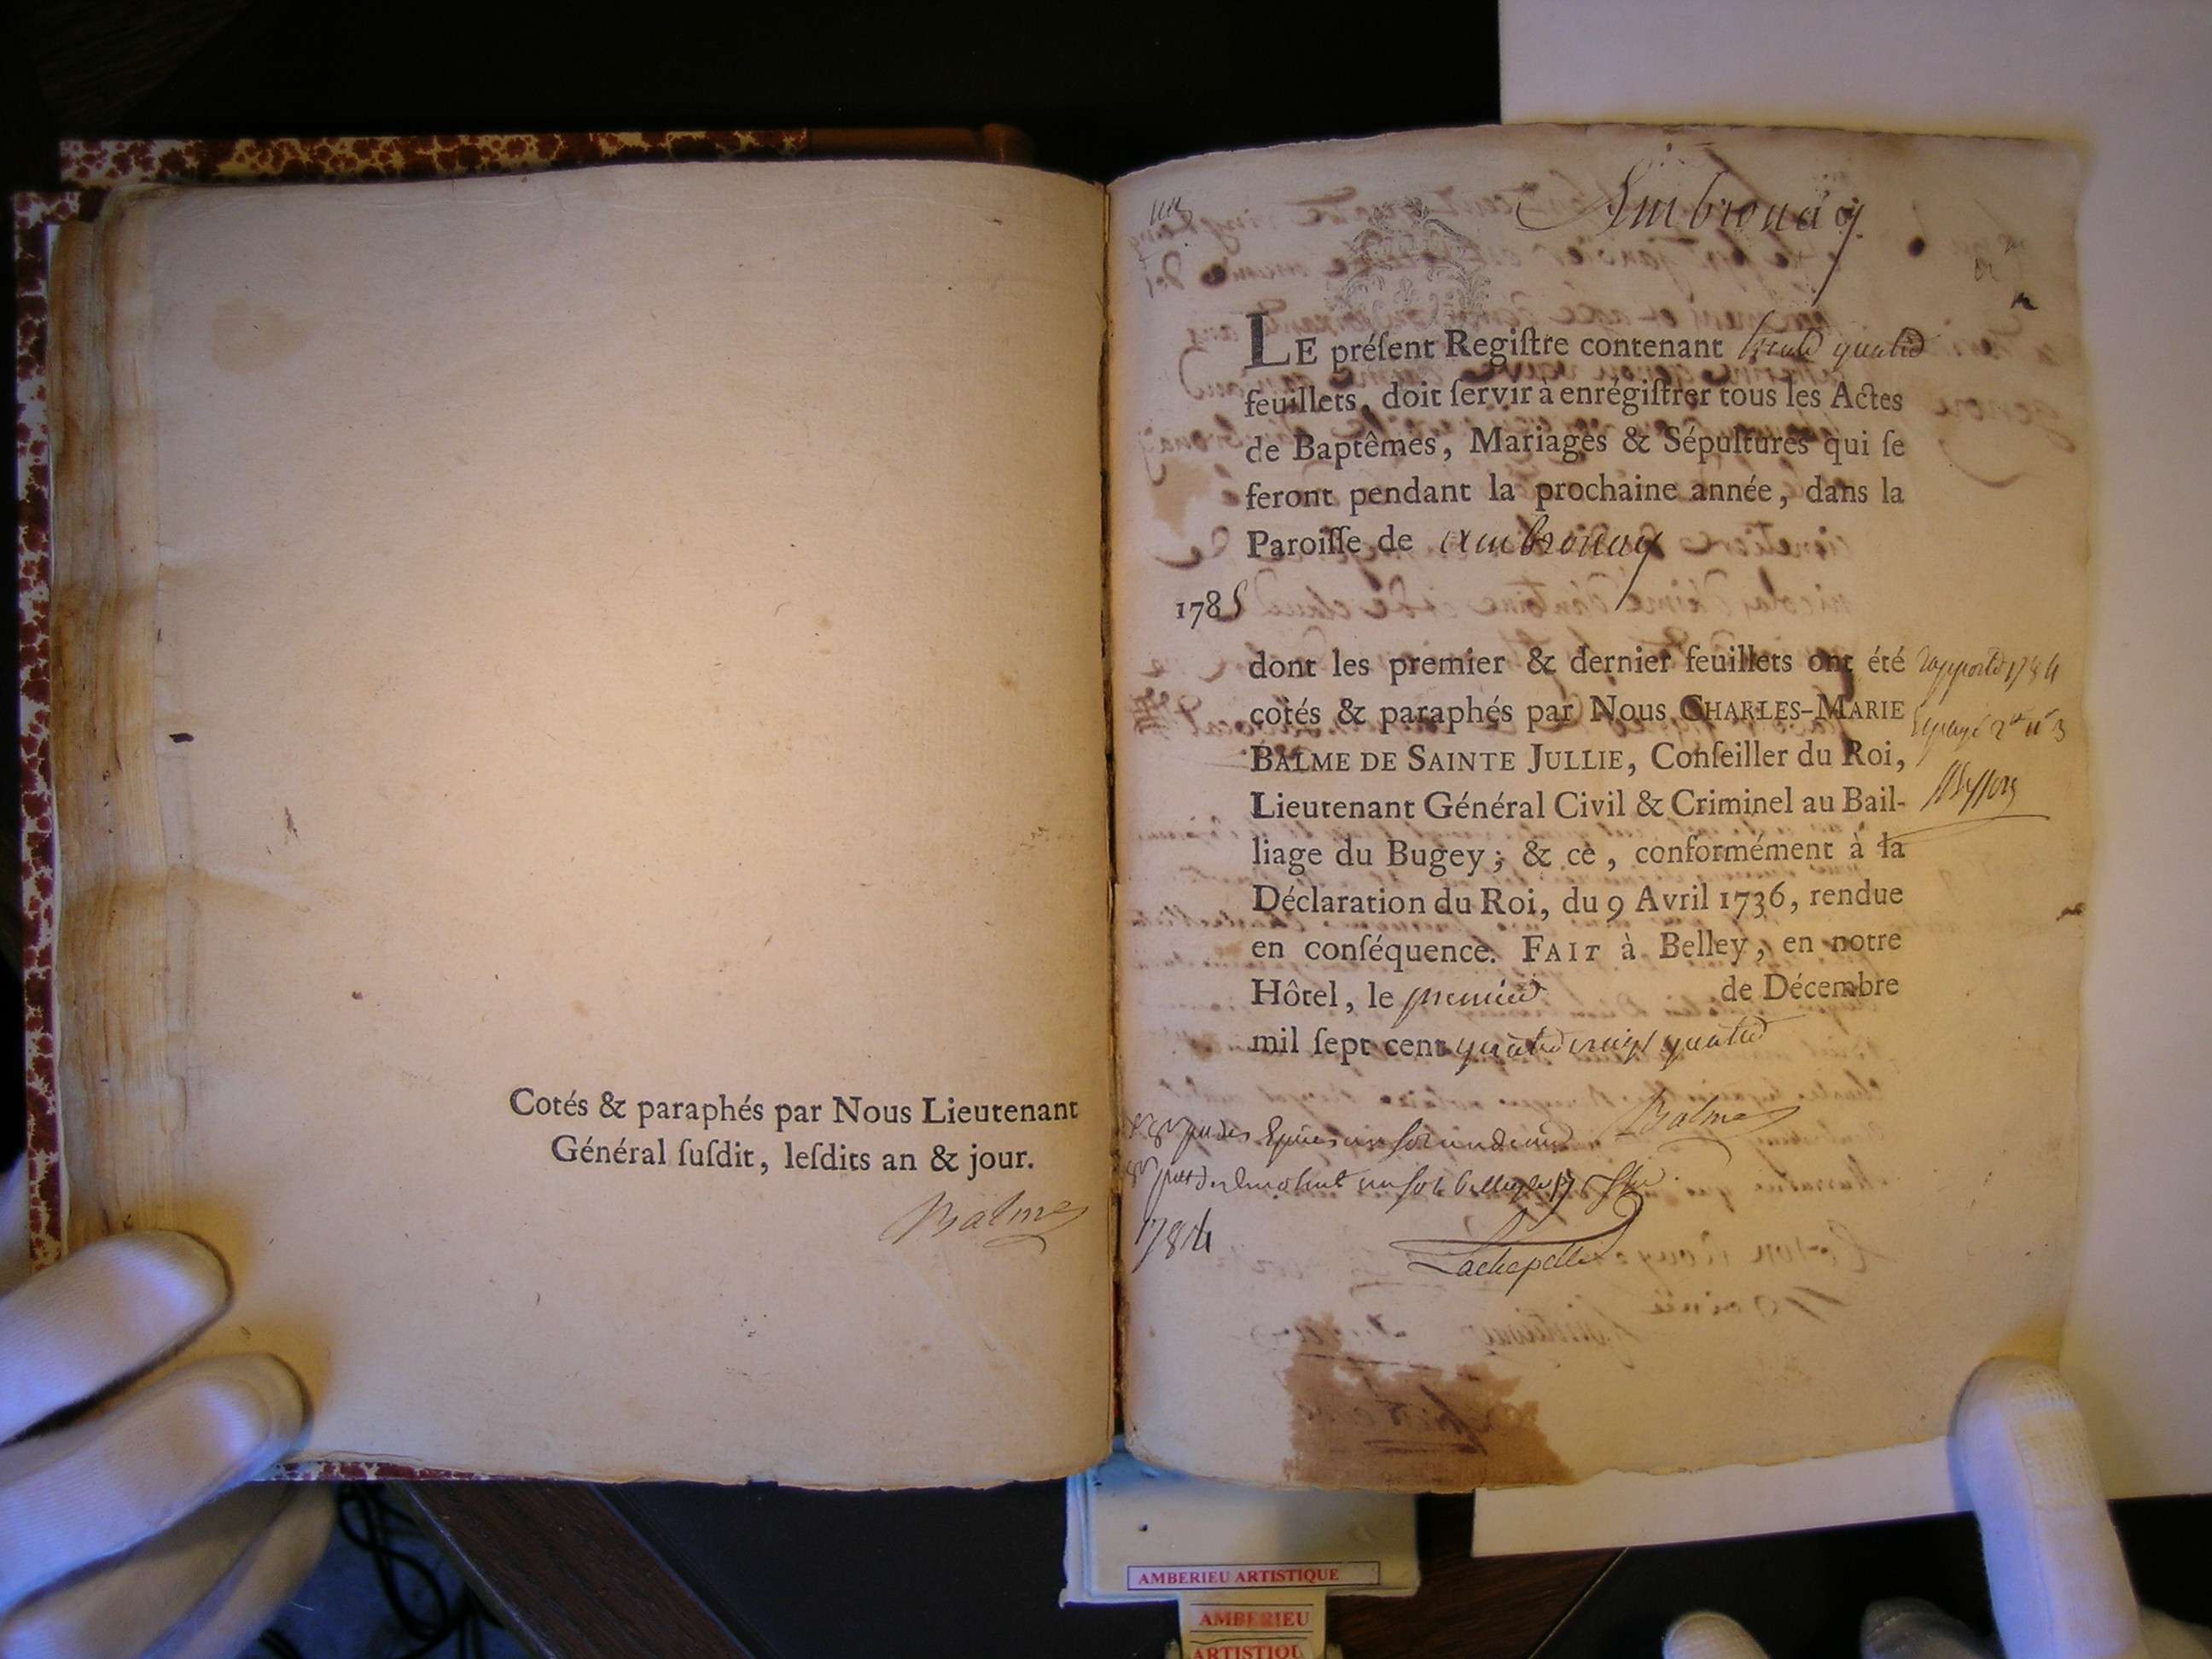 Cotés & paraphés par Nous Lieutenant
Général ſuſdit, leſdits an & jour.
Balme
Ambronay
LE préſent Regiſtre contenant trente quatre
feuillets, doit ſervir à enrégiſtrer tous les Actes
de Baptêmes, Mariages & Sépultures qui ſe
feront pendant la prochaine année, dans la
Paroiſſe de ambronay
1785
dont les premier & dernier feuillets ont été
cotés & paraphés par Nous CHARLES-MARIE
BALME DE SAINTE JULLIE, Conſeiller du Roi,
Lieutenant Général Civil & Criminel au Bail-
liage du Bugey; & ce, conformément à la
Déclaration du Roi, du 9 Avril 1736, rendue
en conſéquence. FAIT à Belley, en notre
Hôtel, le premier de Décembre
mil ſept cent quatre vingt quatre
Balme
1784
Lachapelle
AMBERIEU ARTISTIQUE
AMBERIEU